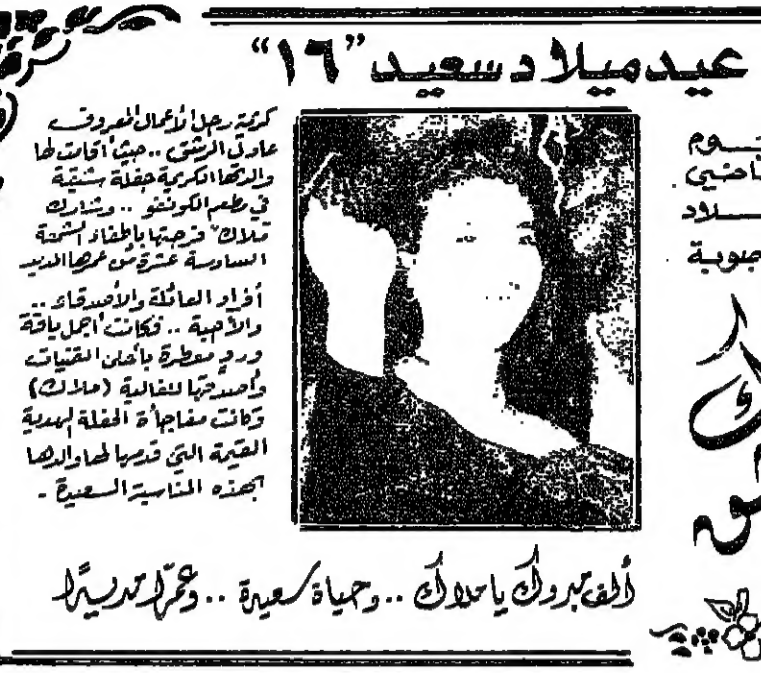 عيد ميلاد سعيد "١٦"
كريمة رجل الأعمال المعروف
عادل .. حيث أقامت لها
والدتها الكريمة حفلة شيقة
في مطعم الكونغو .. وشارك
ملاك فرحتها باطفاء الشمعة
السادسة عشرة من عمرها المديد
أفراد العائلة والأصدقاء ..
والأحبة .. فكانت أجمل باقة
ورد معطرة بأحلى التمنيات
وأصدقها للغالية (ملاك)
وكانت مفاجأة الحفلة الهدية
القيمة التي قدمها لها والدها
بهذه المناسبة السعيدة -
ألف مبروك يا ملاك .. وحياة سعيدة .. وعمرًا مديدًا